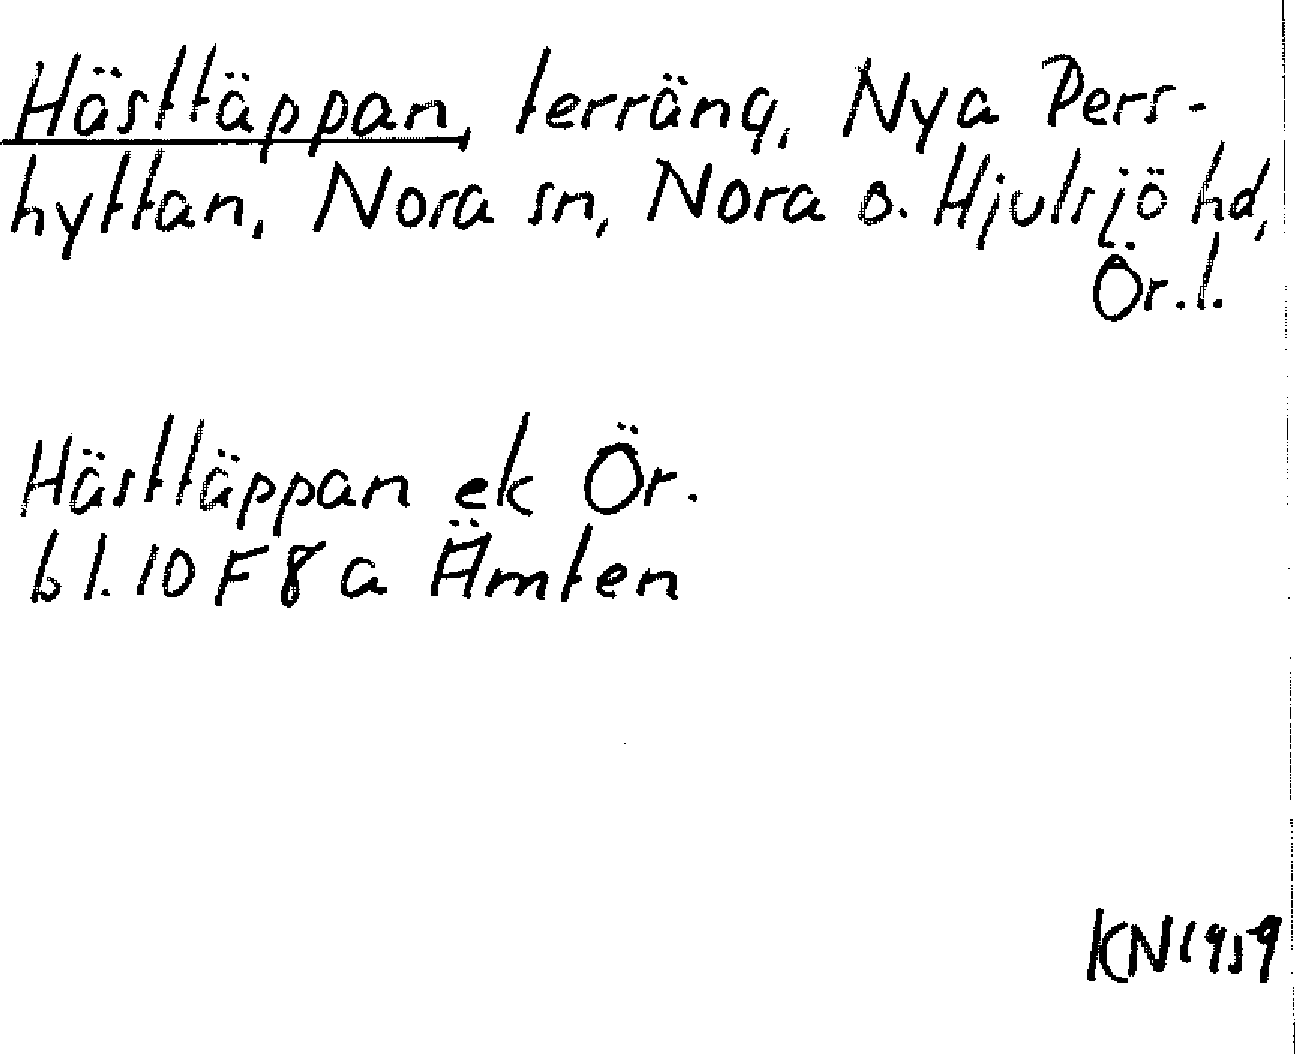 Hästtäppan, terräng, Nya Pers-
hyttan, Nora sn, Nora o. Hjulsjö hd,
Ör. l.
Hästtäppan ek Ör.
bl. 10 F 8 a Ämten
KN 1959